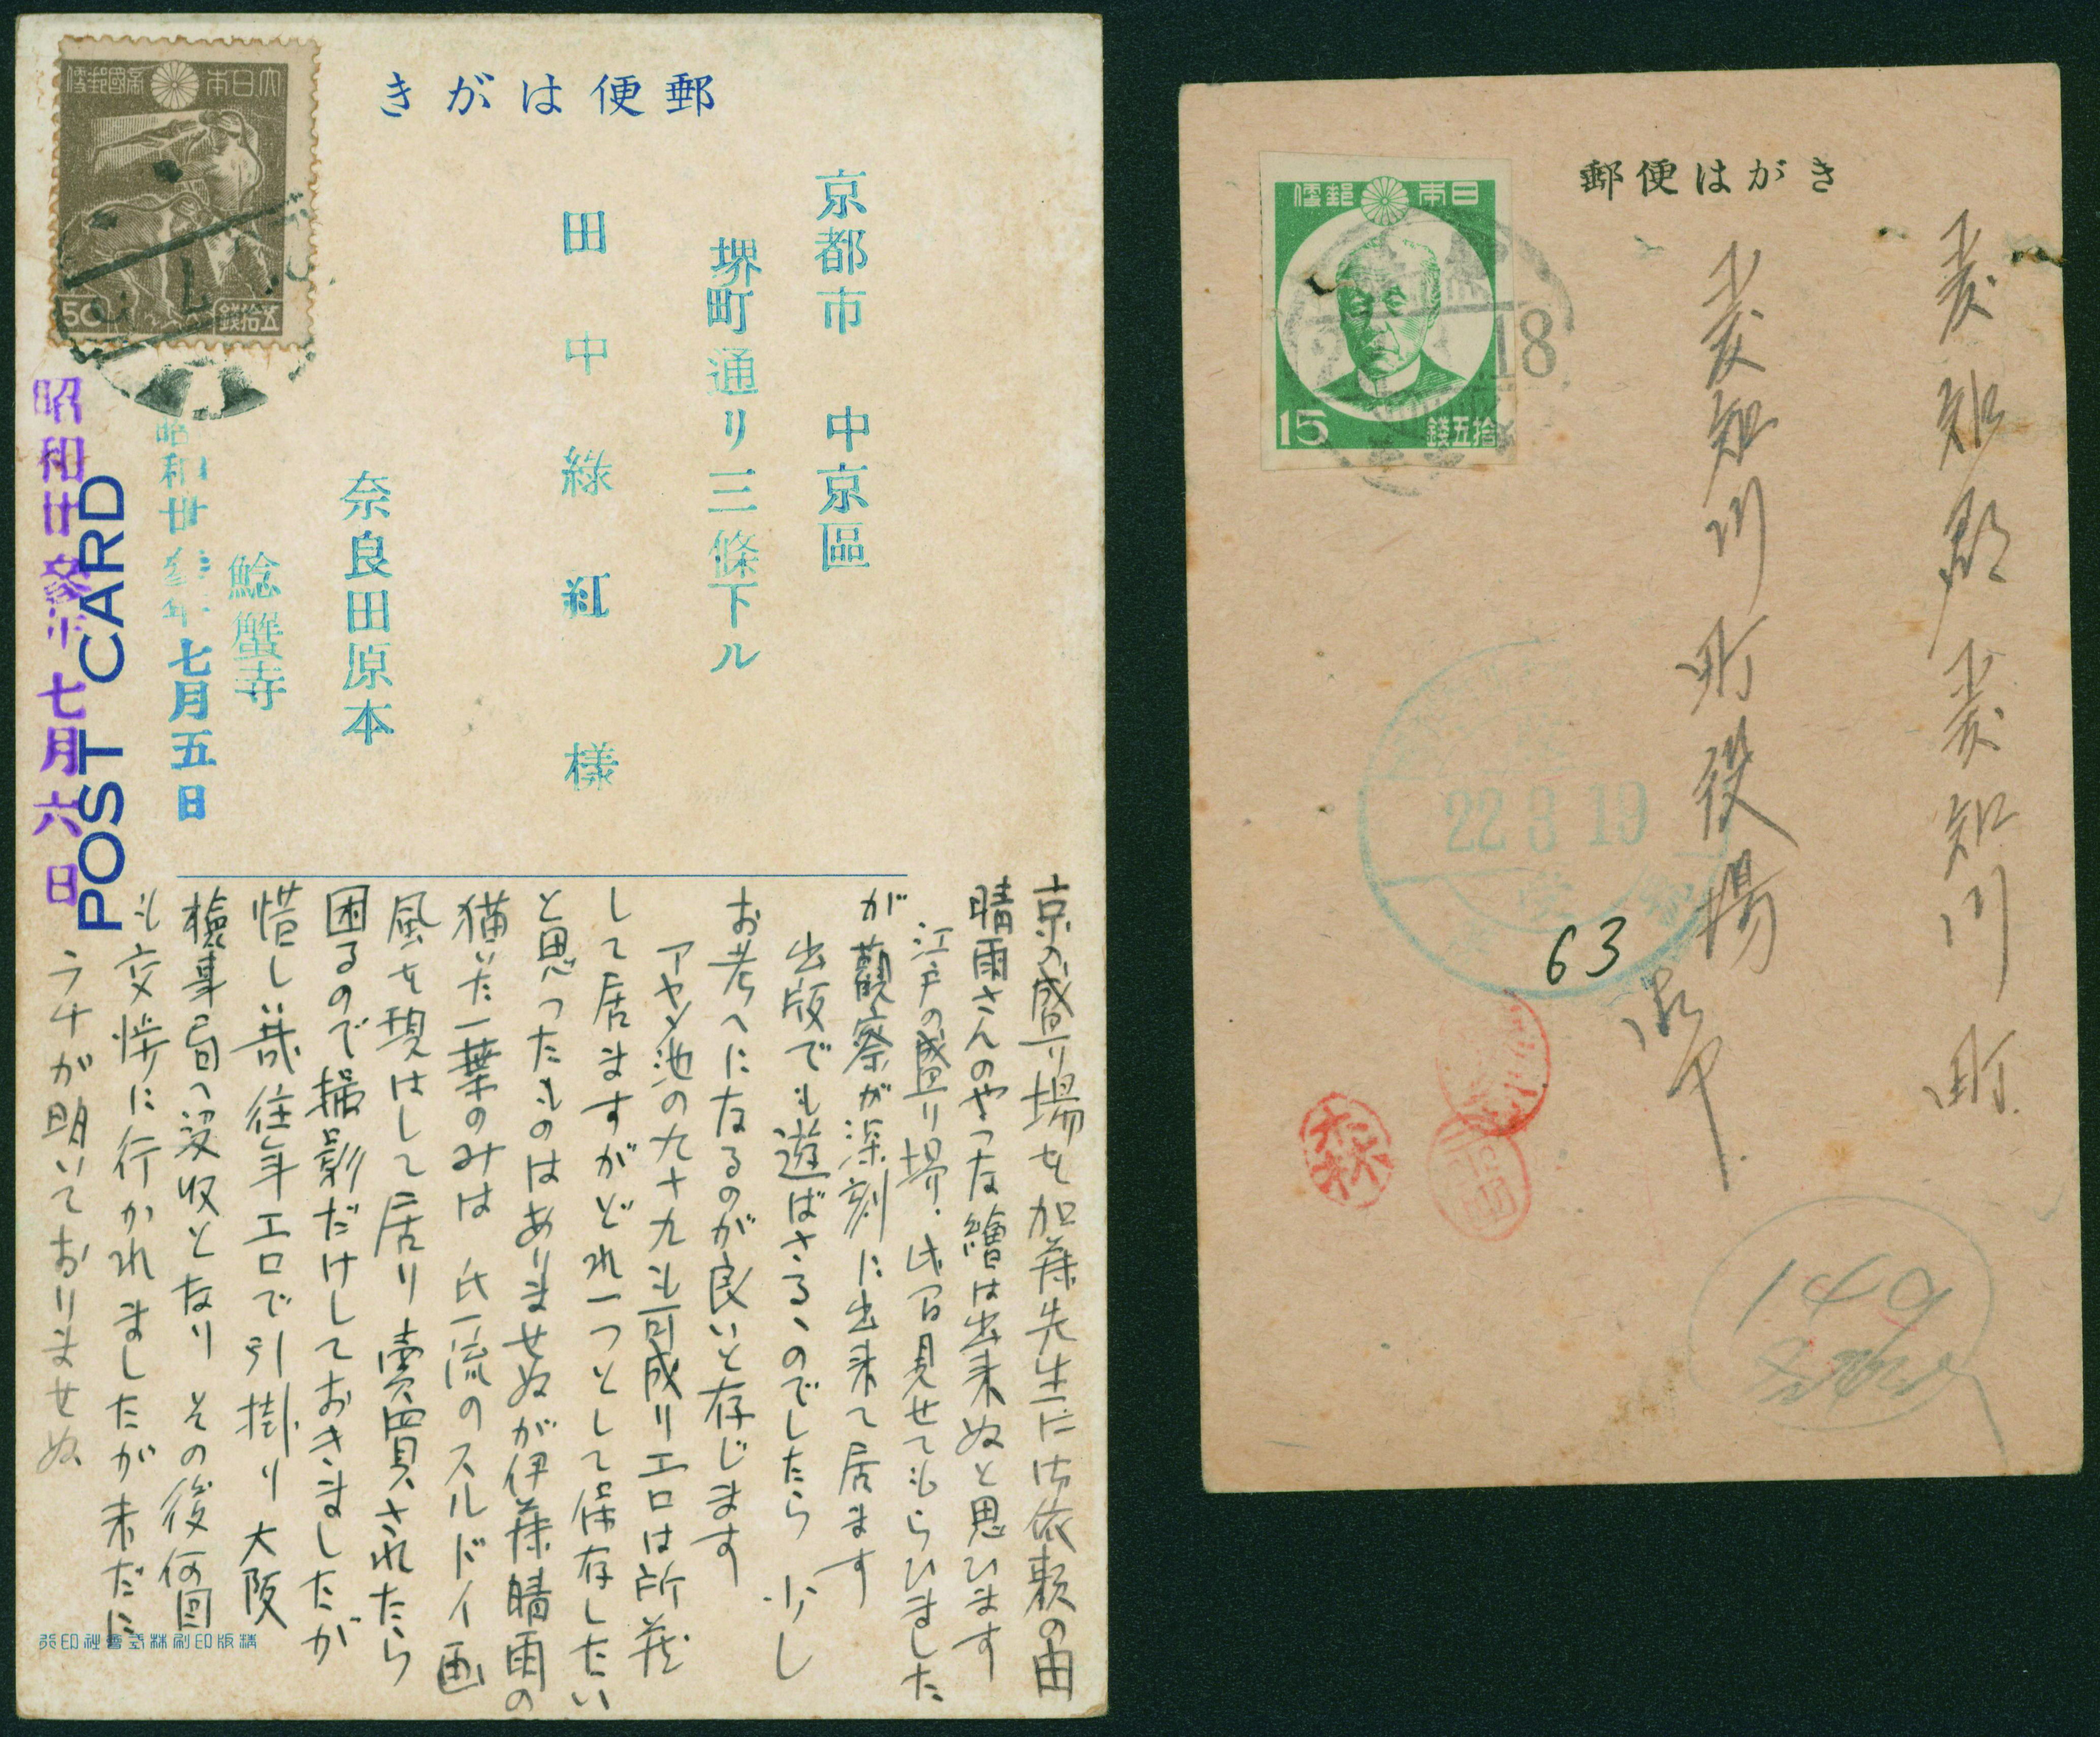 大日本帝國郵便
50 五拾錢
郵便はがき
京都市 中京區
堺町通リ三條下ル
田中緑紅様
奈良田原本
鯰蟹寺
昭和廿參年七月五日
昭和廿參年七月六日
POST CARD
京の盛り場を加藤先生に御依頼の由
晴雨さんのやつな繪は出来ぬと思ひます
江戸の盛り場、此間見せてもらひました
が觀察が深刻に出来て居ます
出版でも遊ばさるゝのでしたら 少し
お考へになるのが良いと存じます
アヤメ池の九十九も可成りエロは所蔵
して居ますがどれ一つとして保存したい
と思ったものはありませぬが伊藤晴雨の
描いた一葉のみは 氏一流のスルドイ画
風を現はして居り 賣買されたら
困るので撮影だけしておきましたが
惜しい哉往年エロで引掛り大阪
檢事局へ没収となり その後何回
も交渉に行かれましたが未だに
ラチが明いておりませぬ
精版印刷株式會社印行
日本郵便
15 拾五錢
18
郵便はがき
愛知郡愛知川町
愛知川町役場
御中
22 3 19
63
森
140